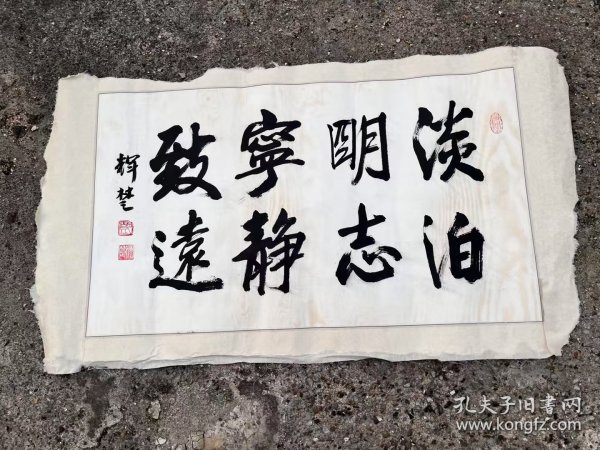 淡泊
明志
寧静
致遠
輝楚
孔夫子旧書网
www.kongfz.com